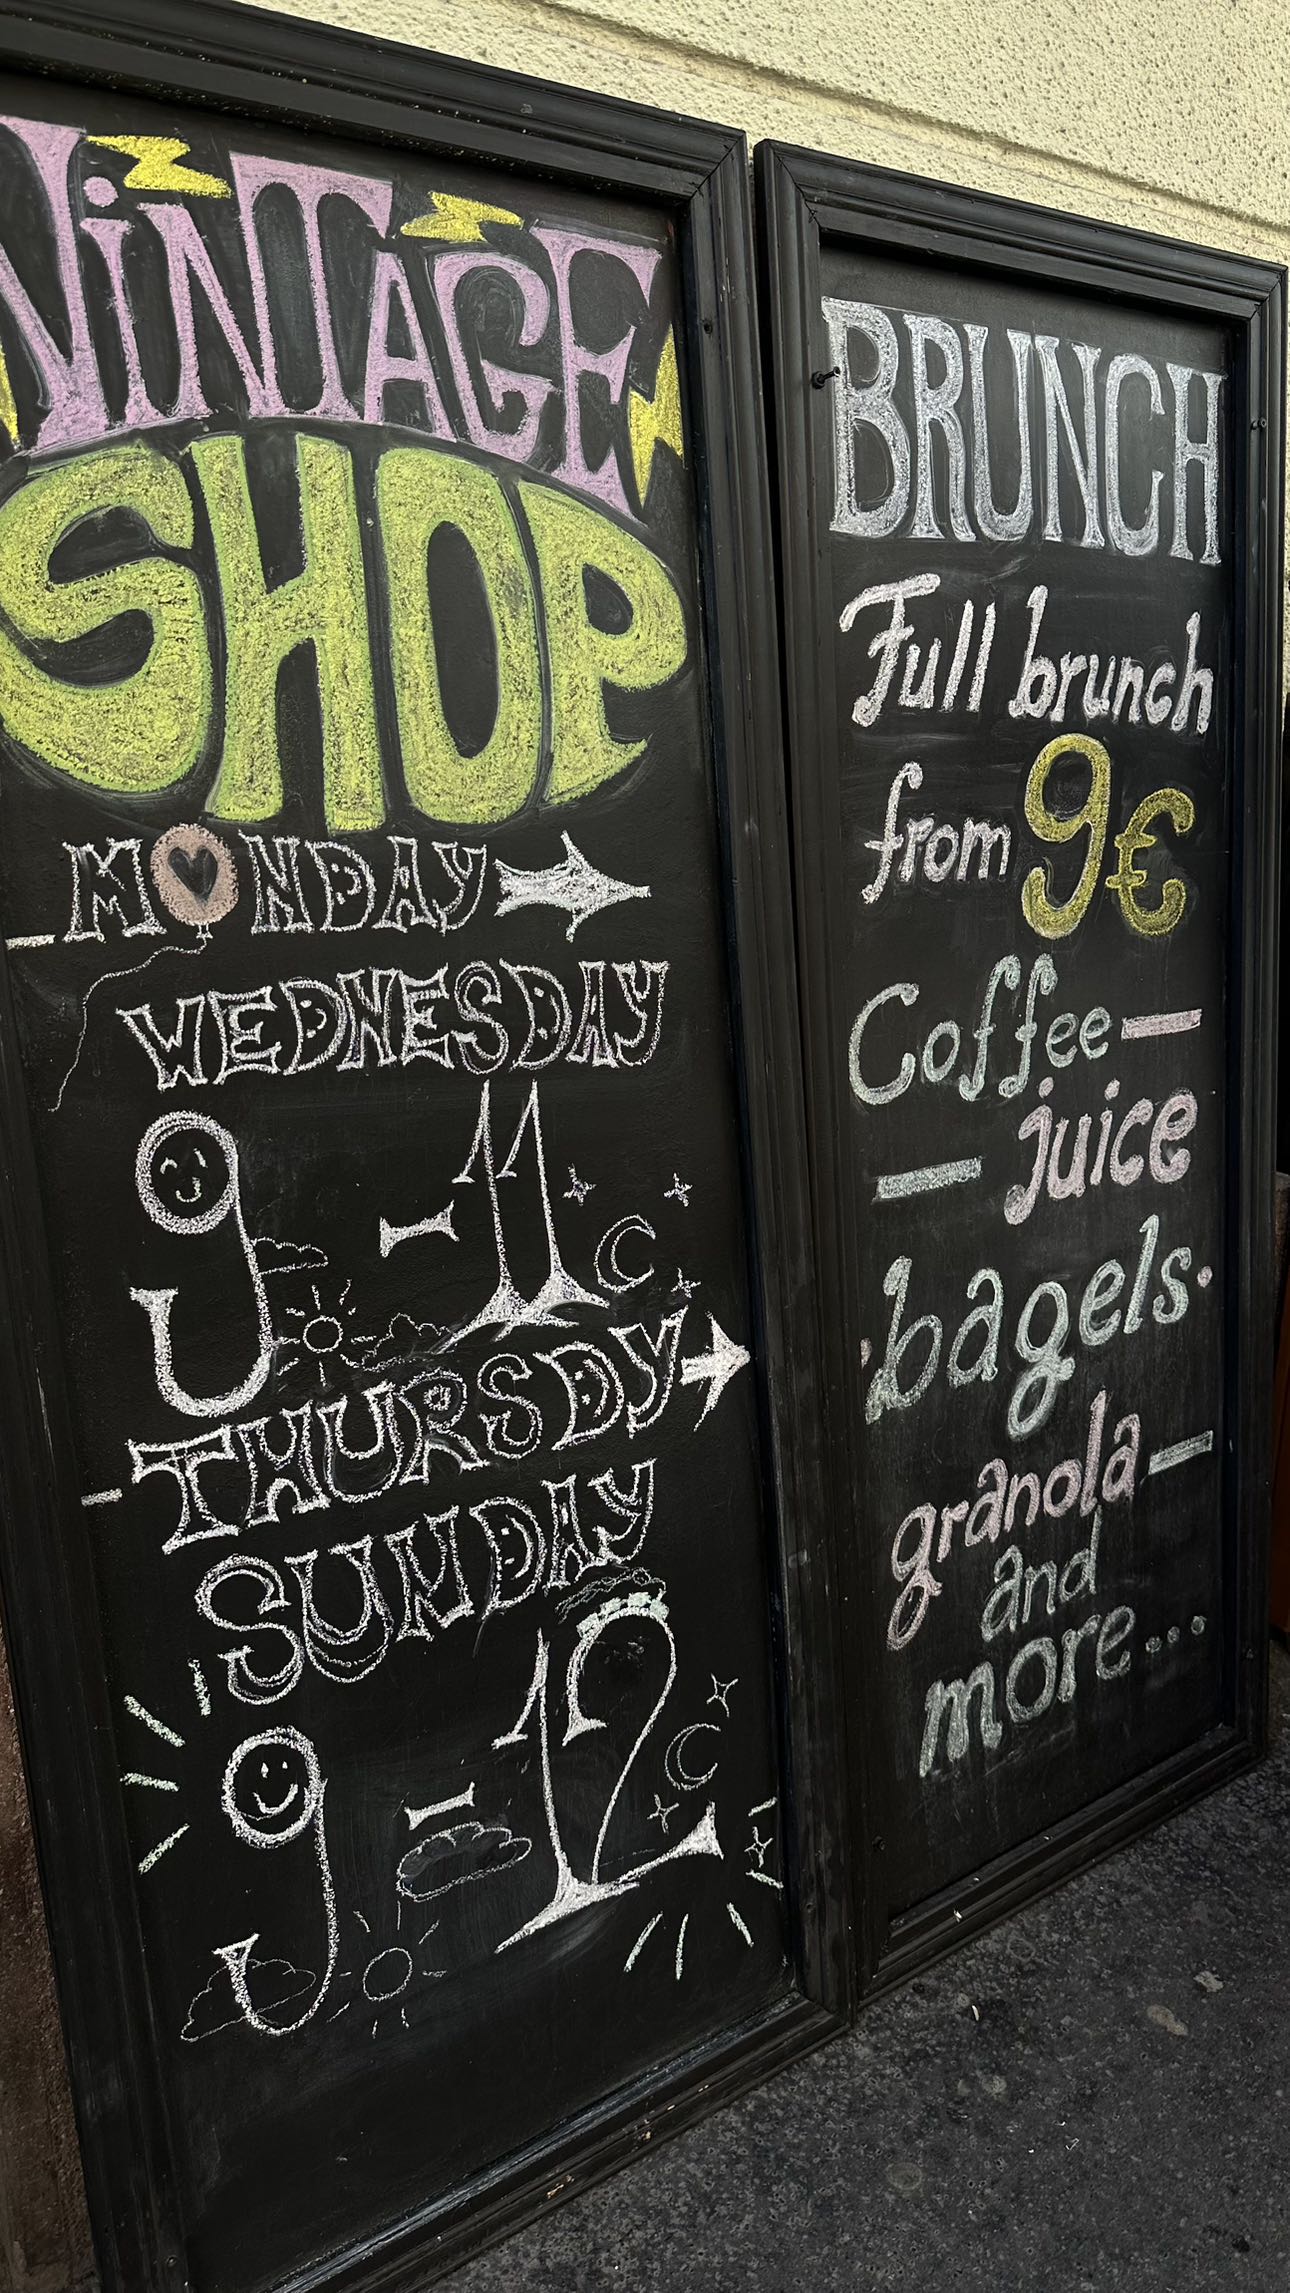 ViNTAGE
SHOP
MONDAY
WEDNESDAY
9-11
THURSDY
SUNDAY
9-12
BRUNCH
Full brunch
from 9€
Coffee-
- juice
bagels
granola-
and
more...